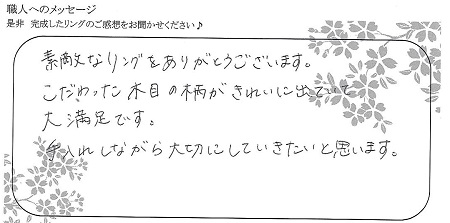 職人へのメッセージ
是非 完成したリングのご感想をお聞かせください♪
素敵なリングをありがとうございます。
こだわった木目の柄がきれいに出ていて
大満足です。
手入れしながら大切にしていきたいと思います。